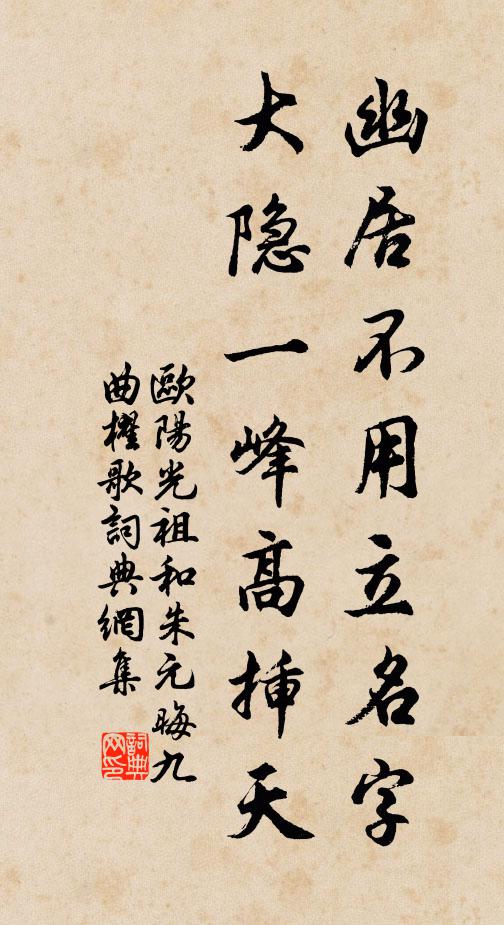 幽居不用立名字
大隐一峰高挿天
歐陽光祖和朱元晦九
曲櫂歌詞典網集
詞典
网印